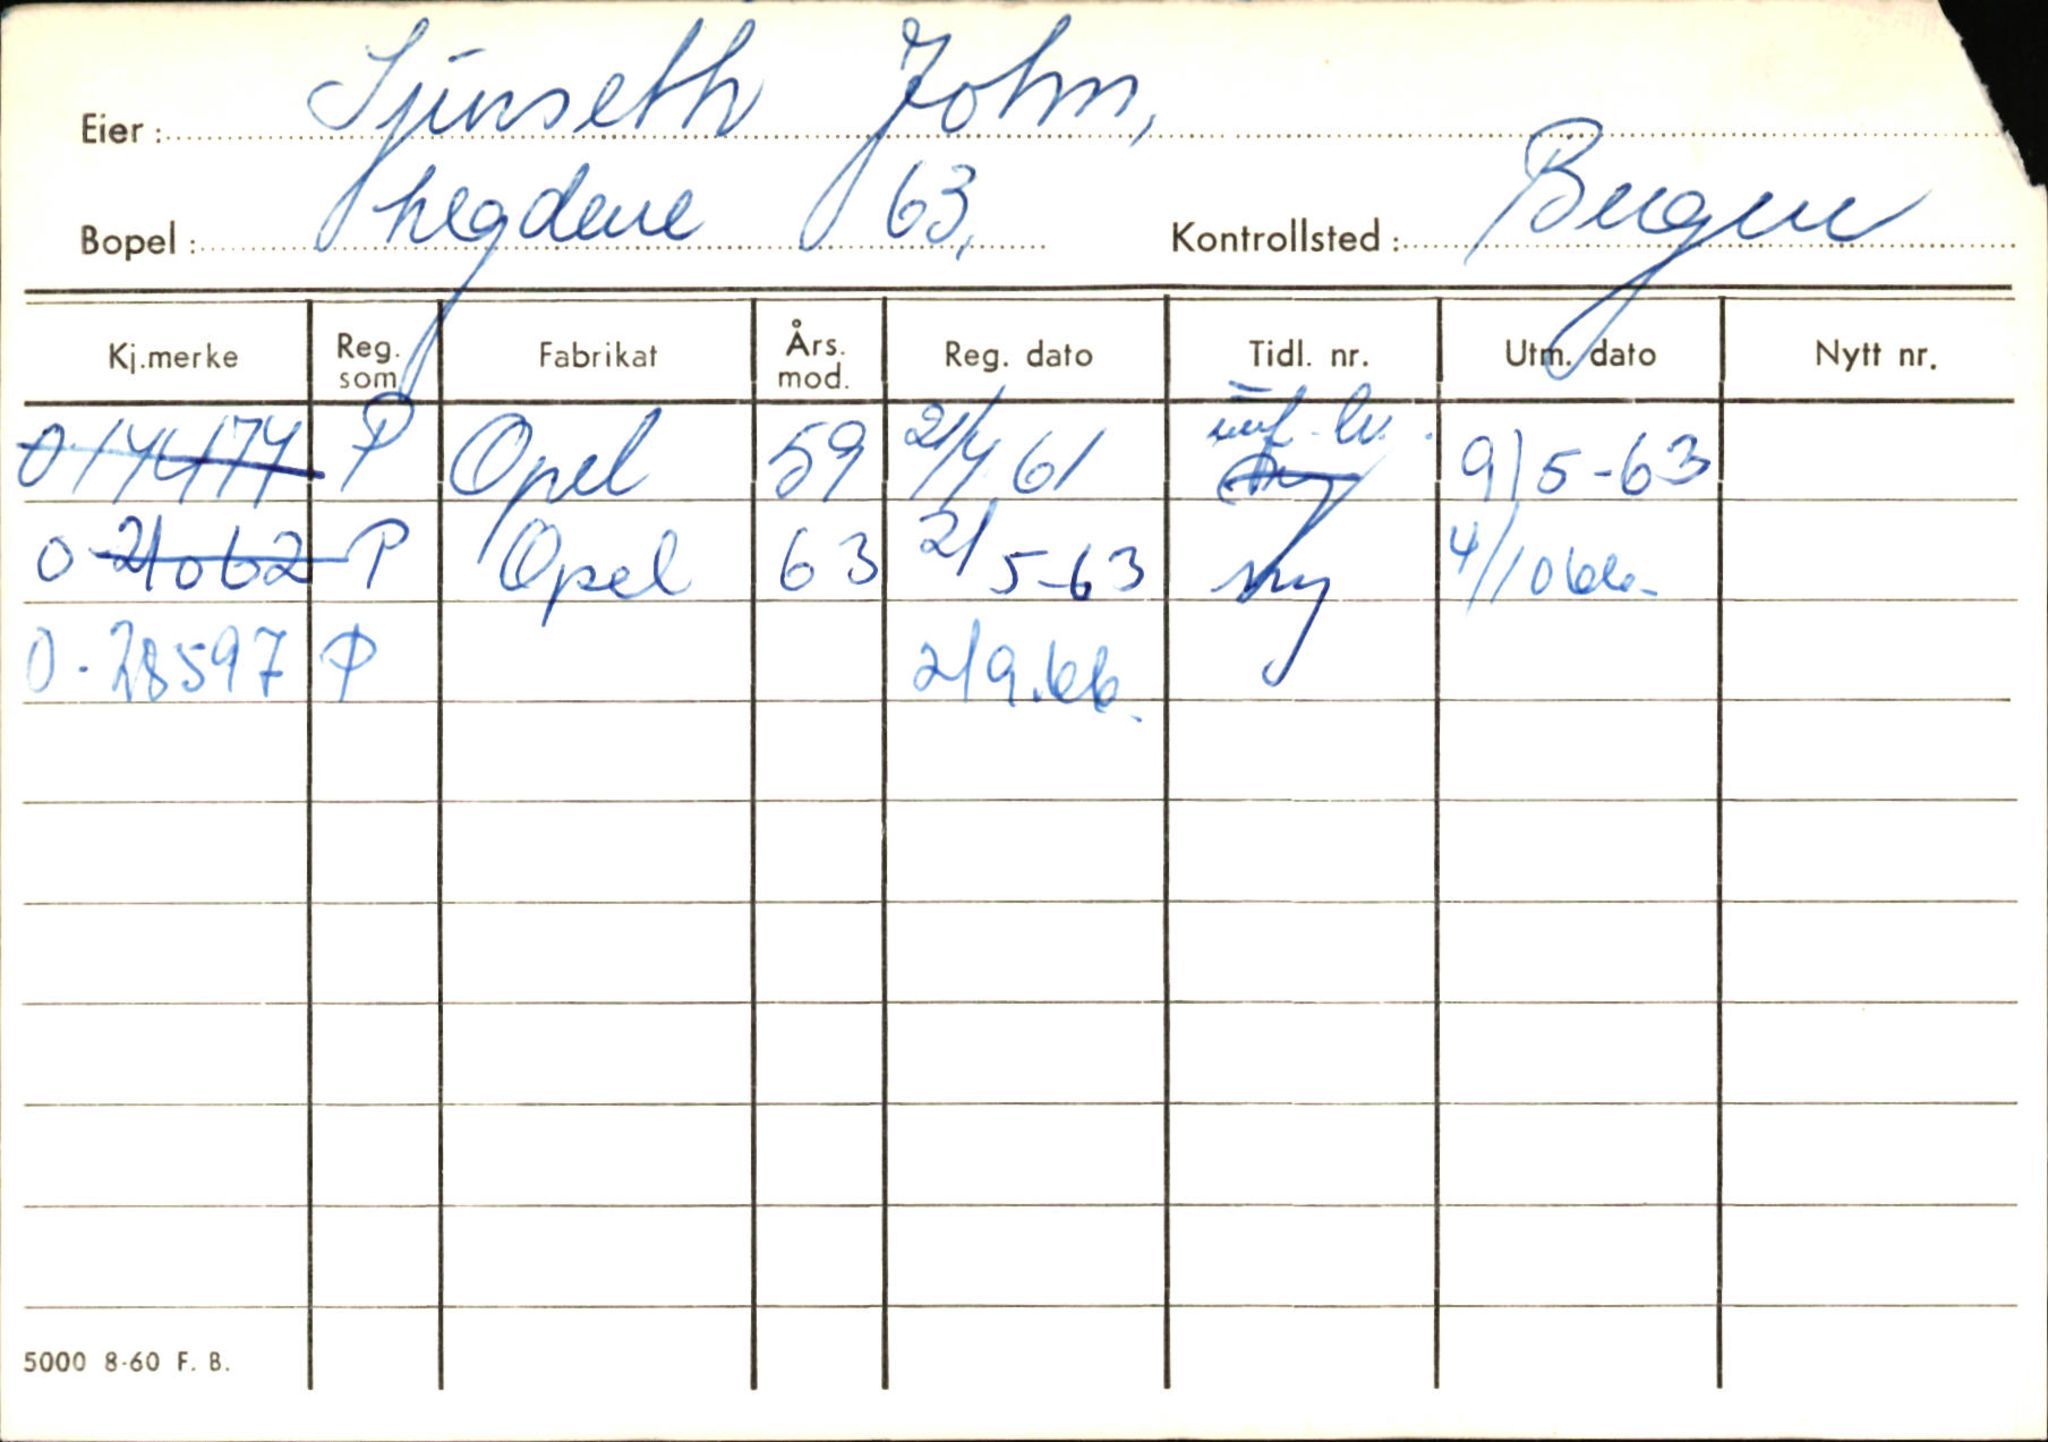 Eier: Sjurseth John,
Bopel: hegdene 63, Kontrollsted: Bergen
Kj.merke Reg. som Fabrikat Års. mod. Reg. dato Tidl. nr. Utm. dato Nytt nr.
0-14474 P Opel 59 21/4 61 9/5-63
0-21062 P Opel 63 2/5-63 Ny 4/10 66.
0-28597 P 2/9.66.
5000 8-60 F. B.